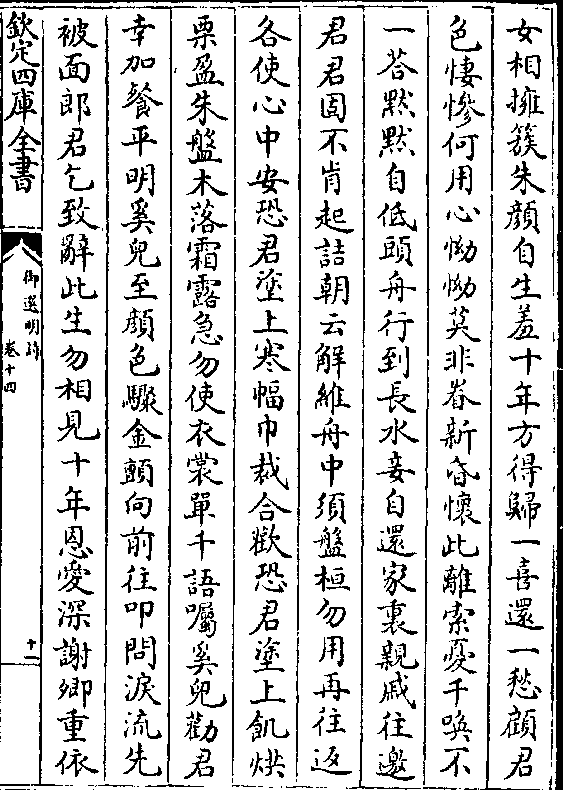 女相擁簇朱顔自生羞十年方得歸一喜還一愁顧君
色悽慘何用心怮怮莫非眷新昏懷此離索憂千喚不
一荅黙黙自低頭舟行到長水妾自還家裏親戚往邀
君君固不肯起詰朝云解維舟中須盤桓勿用再往返
各使心中安恐君塗上寒幅巾裁合歡恐君塗上飢烘
栗盈朱盤木落霜露急勿使衣裳單千語囑奚兒勸君
幸加餐平明奚兒至顔色驟金顫向前往叩問淚流先
被面郎君乞致辭此生勿相見十年恩愛深謝卿重依
欽定四庫全書
御選明詩
卷十四
十一